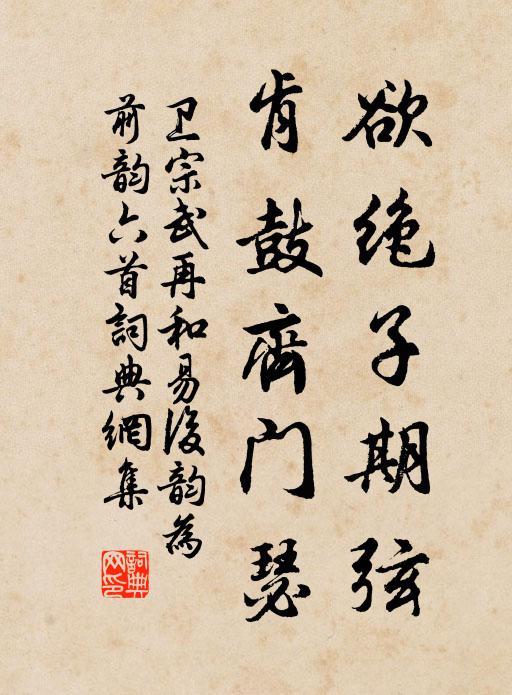 欲绝子期弦
肯鼓齊门瑟
卫宗武再和易后韵为
前韵六首詞典網集
詞典网印